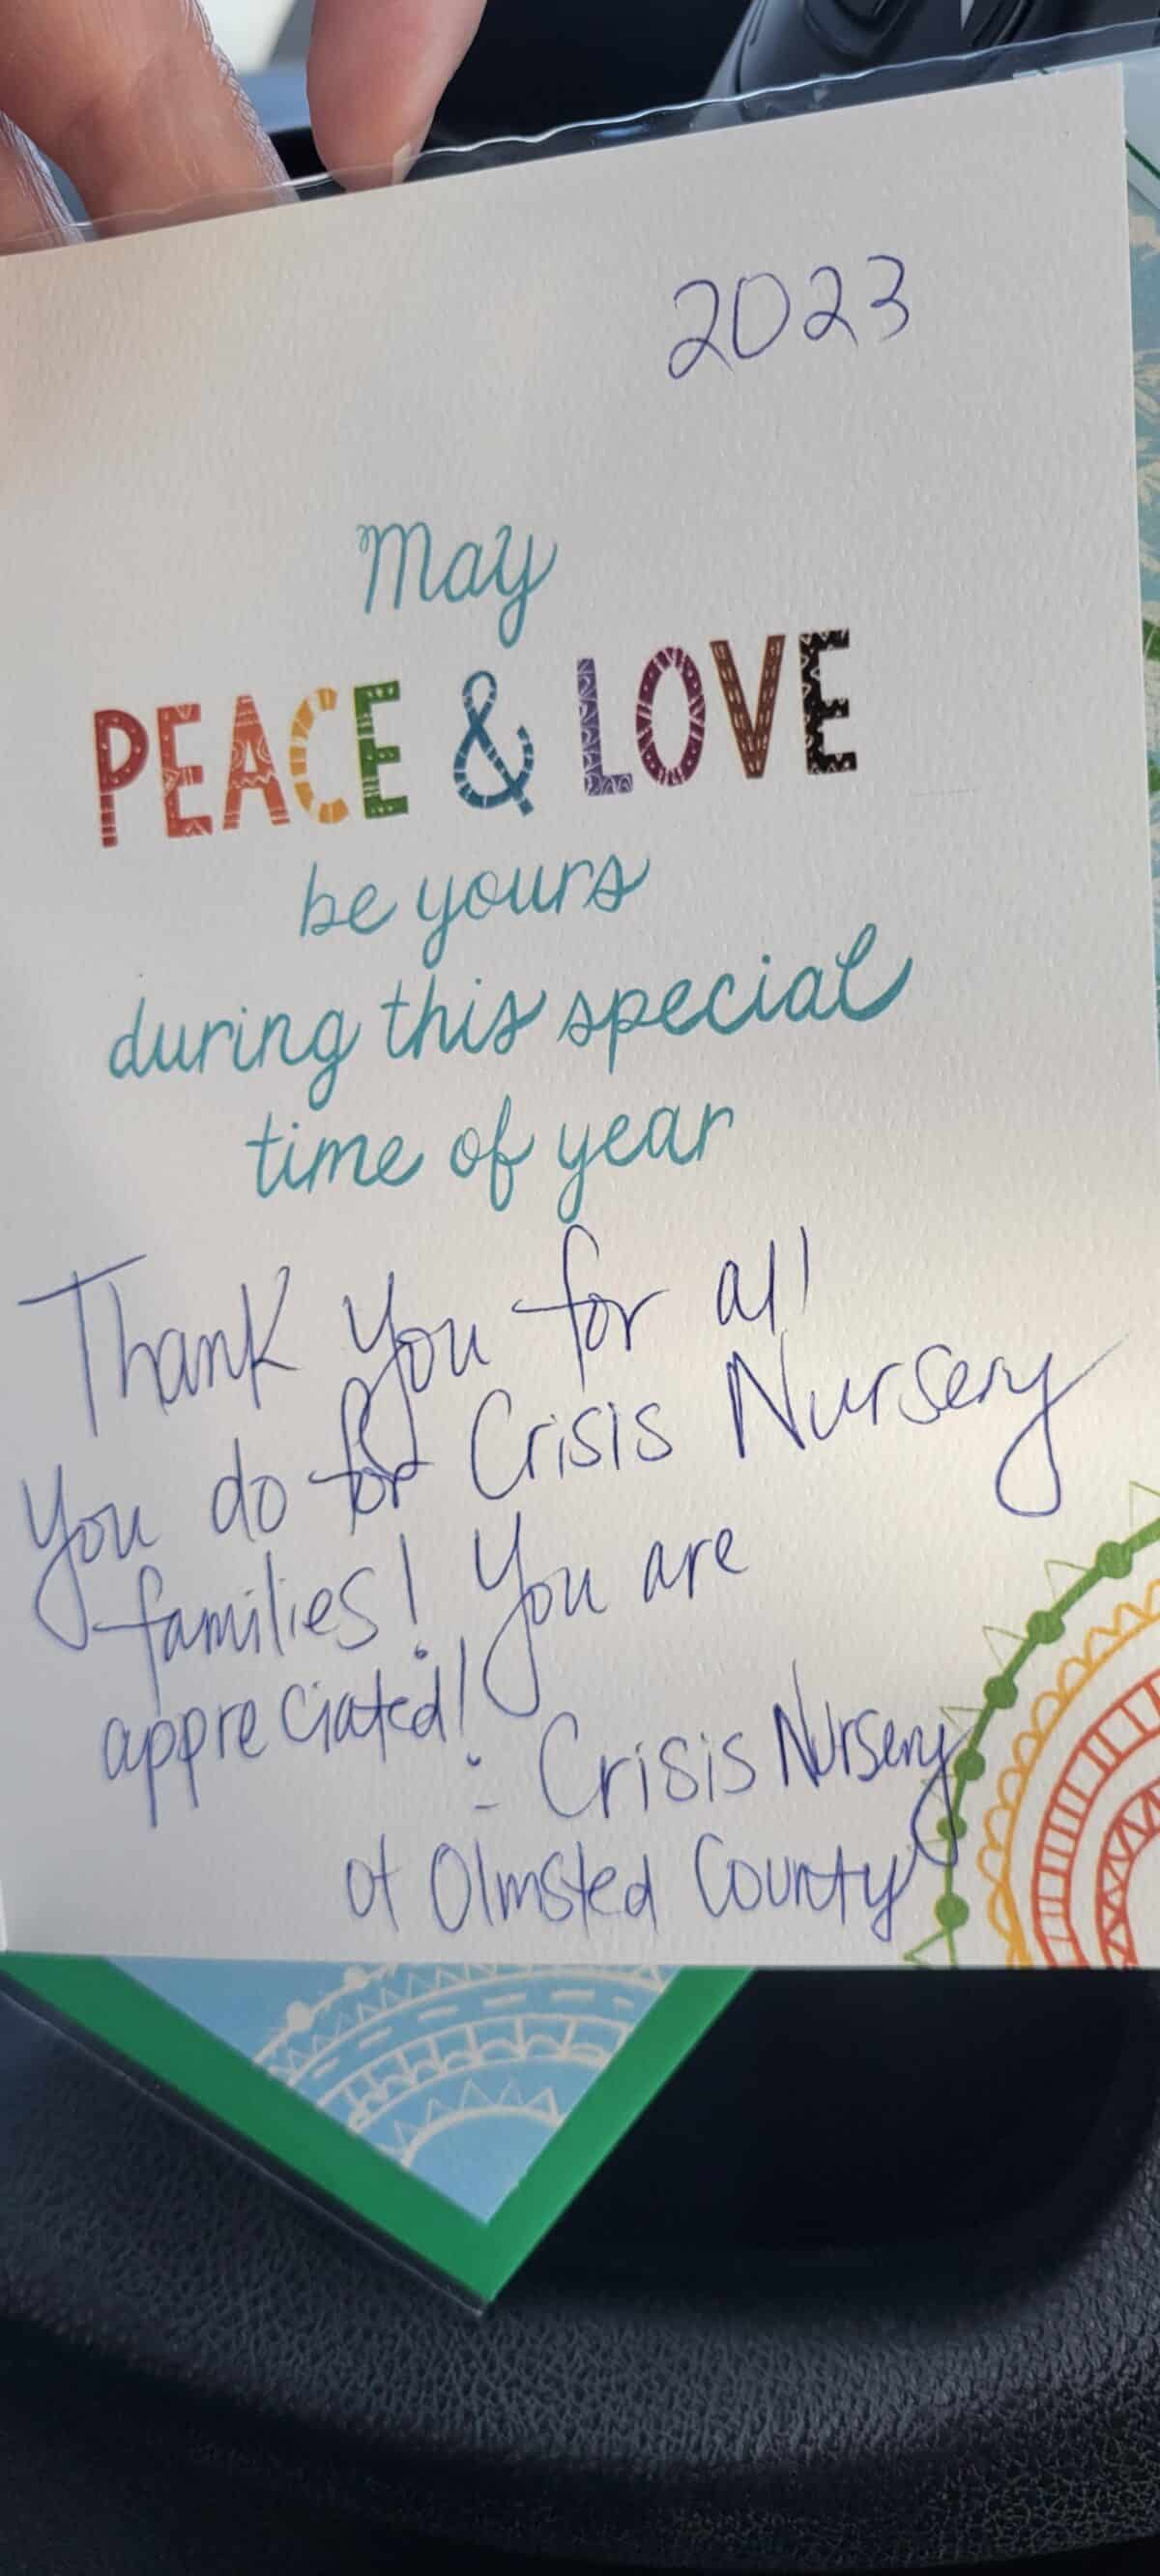 2023
May
PEACE & LOVE
be yours
during this special
time of year
Thank You for all
You do for Crisis Nursery
families! You are
appreciated!
- Crisis Nursery
of Olmsted County